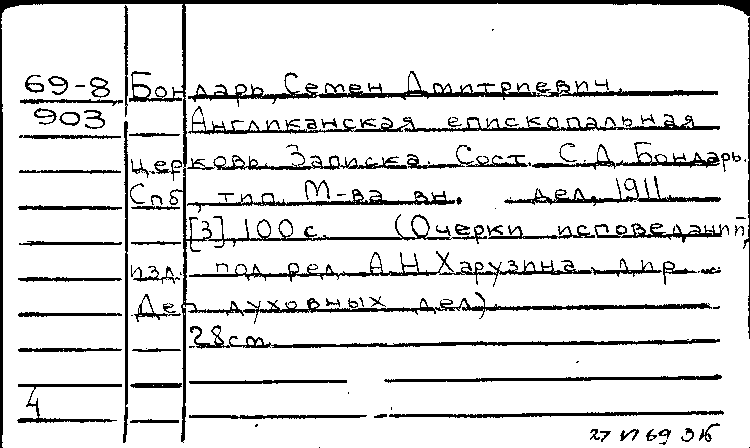 69-8 Бондарь, Семен Дмитриевич.
903 Англиканская епископальная
церковь. Записка. Сост. С.Д. Бондарь.
Спб, тип. М-ва вн. дел, 1911
[3], 100 с. (Очерки исповеданий,
изд. под ред. А.Н. Харузина, дир.
Деп духовных дел)
28 cm.
4
27 VI 69 ЗК